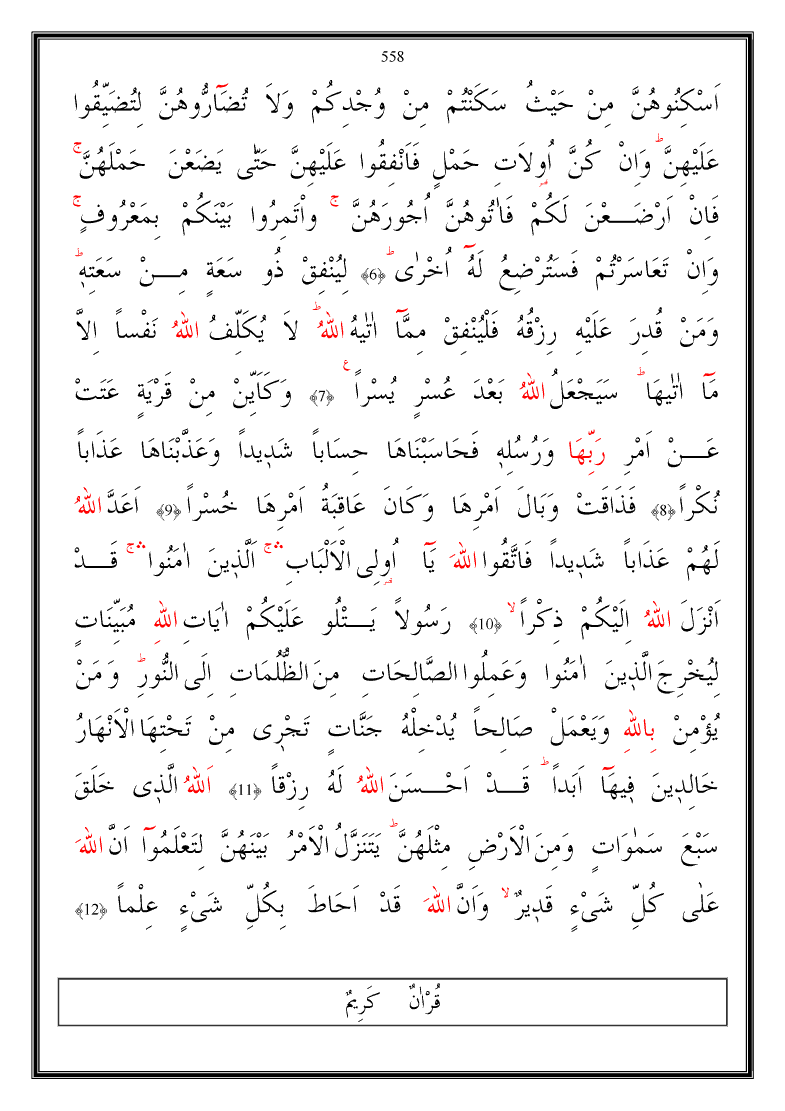 558
اَسْكِنُوهُنَّ مِنْ حَيْثُ سَكَنْتُمْ مِنْ وُجْدِكُمْ وَلَا تُضَٓارُّوهُنَّ لِتُضَيِّقُوا
عَلَيْهِنَّۜ وَاِنْ كُنَّ اُو۬لَاتِ حَمْلٍ فَاَنْفِقُوا عَلَيْهِنَّ حَتّٰى يَضَعْنَ حَمْلَهُنَّۚ
فَاِنْ اَرْضَـــعْنَ لَكُمْ فَاٰتُوهُنَّ اُجُورَهُنَّۚ وأْتَمِرُوا بَيْنَكُمْ بِمَعْرُوفٍۚ
وَاِنْ تَعَاسَرْتُمْ فَسَتُرْضِعُ لَهُٓ اُخْرٰىۜ ﴿6﴾ لِيُنْفِقْ ذُو سَعَةٍ مِـــنْ سَعَتِه۪ۜ
وَمَنْ قُدِرَ عَلَيْهِ رِزْقُهُ فَلْيُنْفِقْ مِمَّٓا اٰتٰيهُ اللّٰهُۜ لَا يُكَلِّفُ اللّٰهُ نَفْساً اِلَّا
مَٓا اٰتٰيهَاۜ سَيَجْعَلُ اللّٰهُ بَعْدَ عُسْرٍ يُسْراًࣖ ﴿7﴾ وَكَاَيِّنْ مِنْ قَرْيَةٍ عَتَتْ
عَـــنْ اَمْرِ رَبِّهَا وَرُسُلِه۪ فَحَاسَبْنَاهَا حِسَاباً شَد۪يداً وَعَذَّبْنَاهَا عَذَاباً
نُكْراً ﴿8﴾ فَذَاقَتْ وَبَالَ اَمْرِهَا وَكَانَ عَاقِبَةُ اَمْرِهَا خُسْراً ﴿9﴾ اَعَدَّ اللّٰهُ
لَهُمْ عَذَاباً شَد۪يداً فَاتَّقُوا اللّٰهَ يَٓا اُو۬لِى الْاَلْبَابِۛۚ اَلَّذ۪ينَ اٰمَنُواۛۚ قَـــدْ
اَنْزَلَ اللّٰهُ اِلَيْكُمْ ذِكْراًۙ ﴿10﴾ رَسُولاً يَـــتْلُو عَلَيْكُمْ اٰيَاتِ اللّٰهِ مُبَيِّنَاتٍ
لِيُخْرِجَ الَّذ۪ينَ اٰمَنُوا وَعَمِلُوا الصَّالِحَاتِ مِنَ الظُّلُمَاتِ اِلَى النُّورِۜ وَمَنْ
يُؤْمِنْ بِاللّٰهِ وَيَعْمَلْ صَالِحاً يُدْخِلْهُ جَنَّاتٍ تَجْر۪ى مِنْ تَحْتِهَا الْاَنْهَارُ
خَالِد۪ينَ ف۪يهَٓا اَبَداًۜ قَـــدْ اَحْـــسَنَ اللّٰهُ لَهُ رِزْقاً ﴿11﴾ اَللّٰهُ الَّذ۪ى خَلَقَ
سَبْعَ سَمٰوَاتٍ وَمِنَ الْاَرْضِ مِثْلَهُنَّۜ يَتَنَزَّلُ الْاَمْرُ بَيْنَهُنَّ لِتَعْلَمُٓوا اَنَّ اللّٰهَ
عَلٰى كُلِّ شَىْءٍ قَد۪يرٌۙ وَاَنَّ اللّٰهَ قَدْ اَحَاطَ بِكُلِّ شَىْءٍ عِلْماً ﴿12﴾
قُرْاٰنٌ كَرِيمٌ